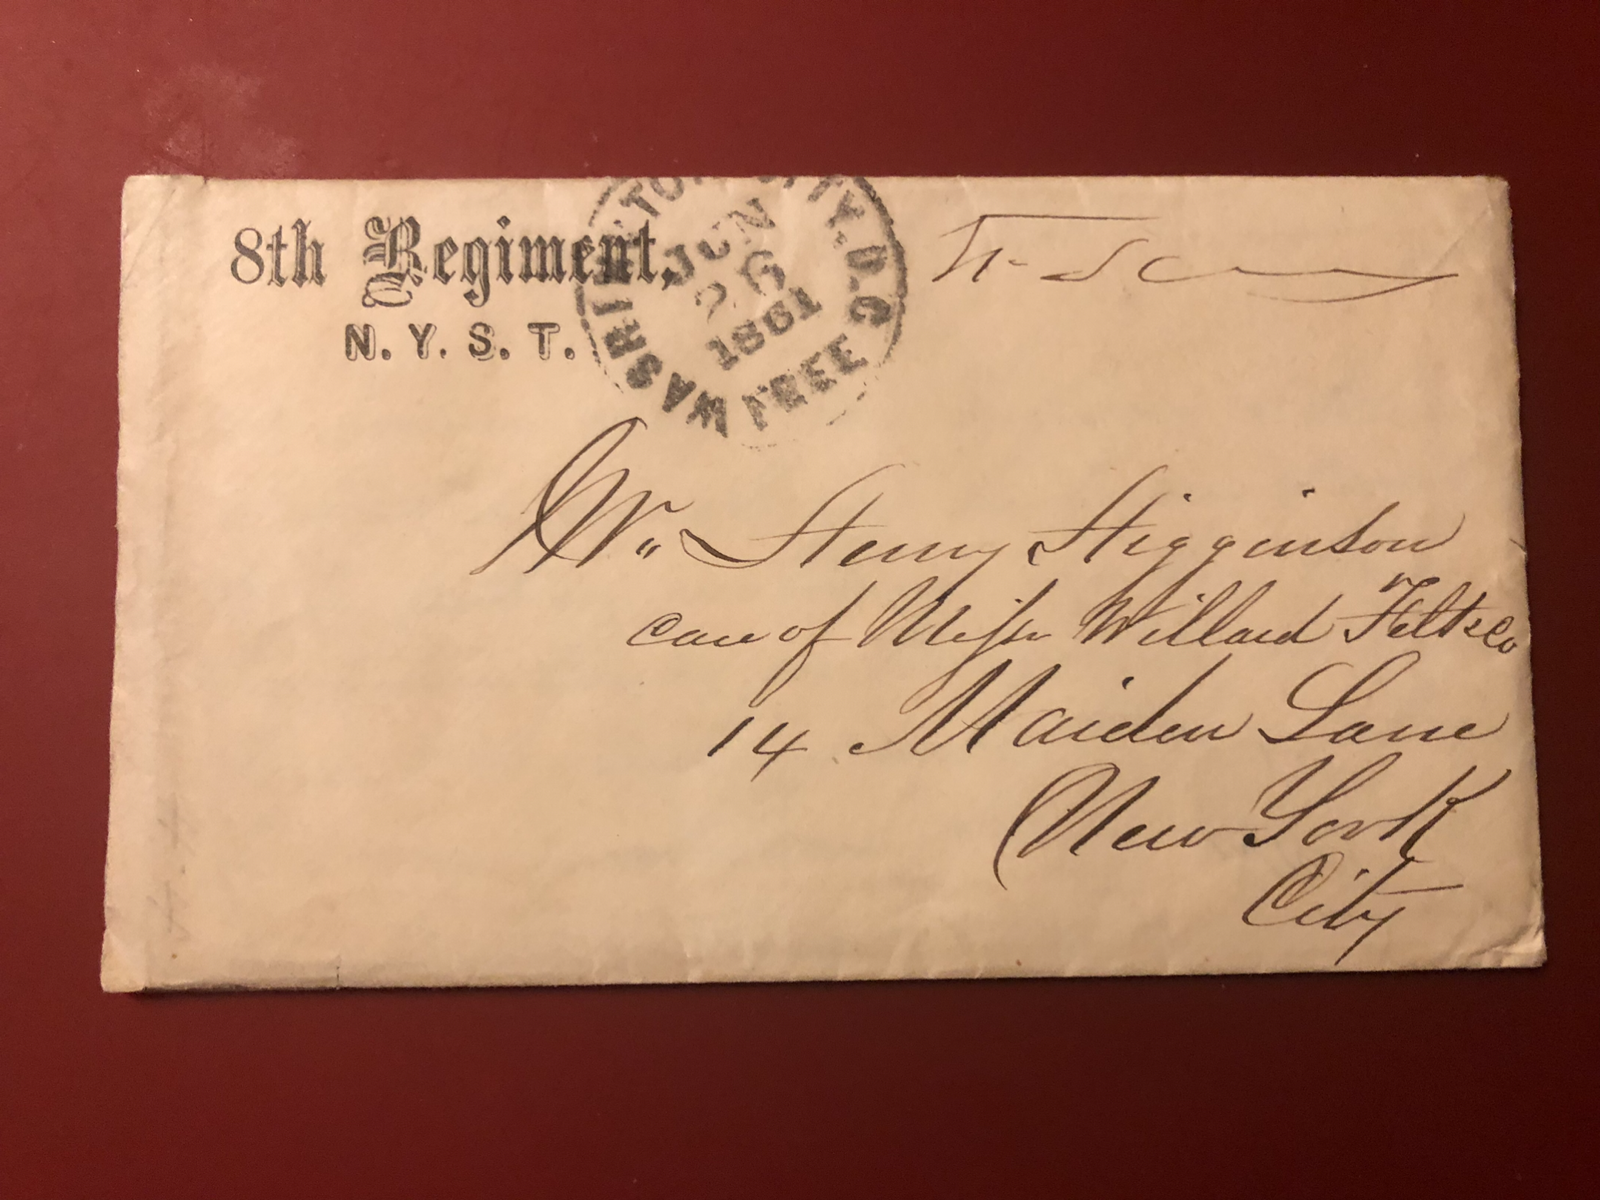 8th Regiment,
N. Y. S. T.
WASHINGTON CITY. D.C.
JUN
26
1861
FREE
Mr. Henry Higginson
care of Messrs Willard Felt & Co
14 Maiden Lane
New York
City